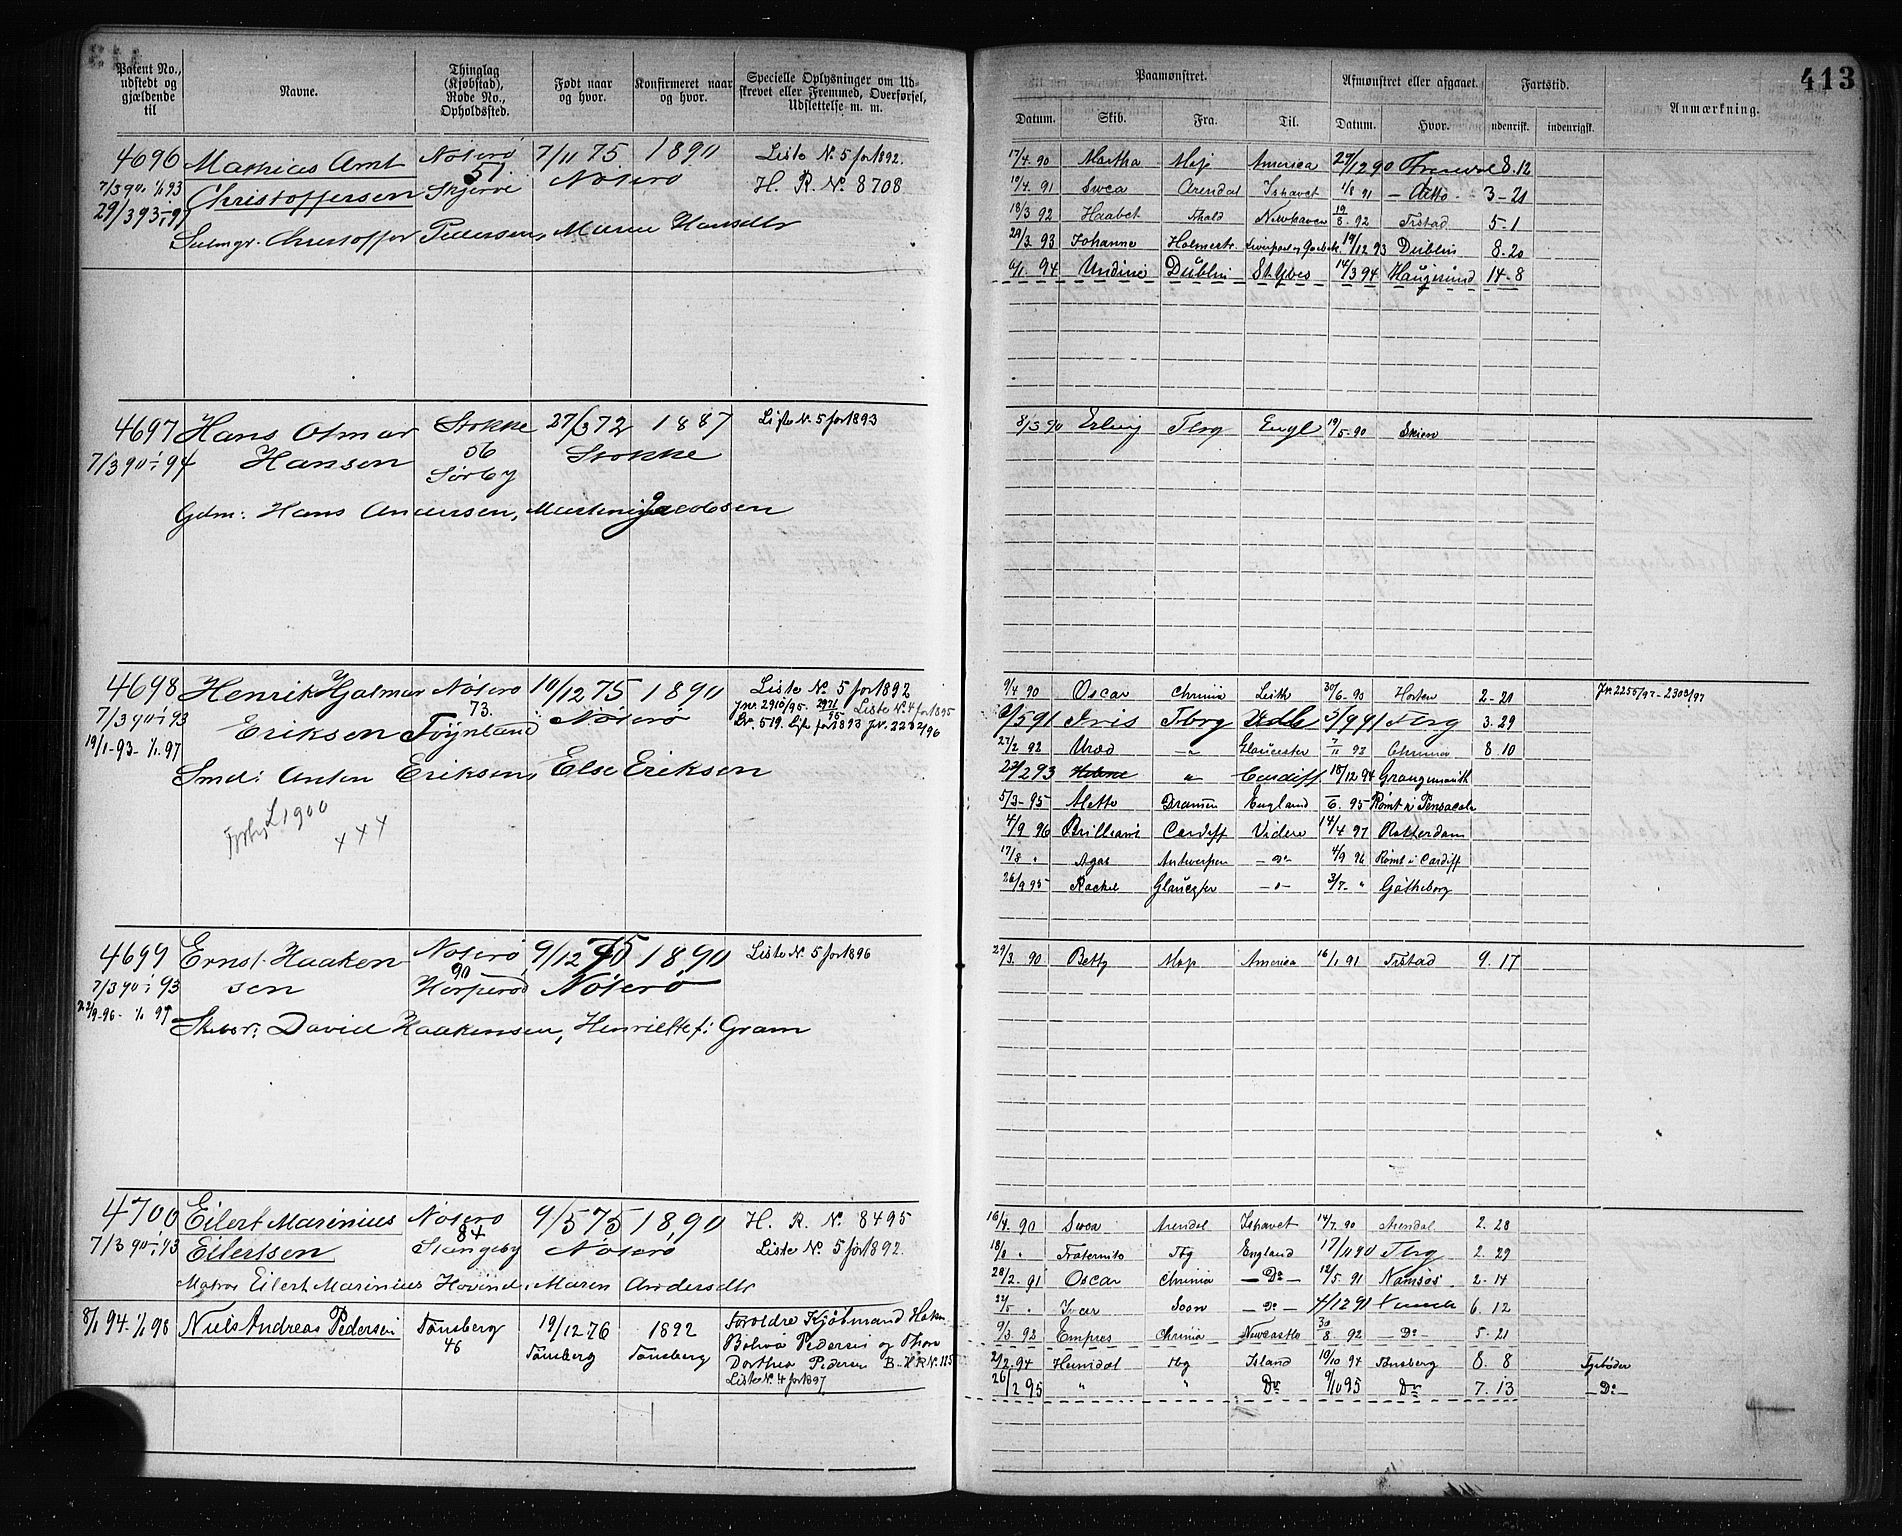 413
Patent No., udstedt og gjældende til
Navne.
Thinglag (Kjøbstad), Rode No., Opholdssted.
Født naar og hvor.
Konfirmeret naar og hvor.
Specielle Oplysninger om Udskrevet eller Fremmed, Overførsel, Udslettelse m. m.
Paamønstret.
Datum. Skib. Fra. Til.
Afmønstret eller afgaaet.
Datum. Hvor.
Fartstid.
indenrigst.
Anmærkning.
4696 Mathias Amt Nøterø 7/11 75 1890 Liste No. 5 for 1892.
7/3 90 1/1 93 Christoffersen 51 Skjerve Nøterø H. R. No. 8708
29/3 93 - 97
Christoffer Pedersen, Maren Hansdtr
17/4 90 Martha Moss America 27/12 90 8. 12
10/4 91 Svea Arendal Ishavet 1/8 91 3 - 21
18/3 92 Haabet Newhaven 19/8 92 Frstad 5 - 1
29/3 93 Johanne Holmestr. Liverpool og Quebek 19/12 93 Dublin 8. 20
94 Undine Dublin St. Yves 14/3 94 Haugesund 14 - 8
4697 Hans Otmar Stokke 27/3 72 1887 Liste No. 5 for 1893
7/3 90 - 94 Hansen 56 Sørby Stokke
Gdm: Hans Andersen, Jacobsen
8/3 90 Erling Tbrg Engl 19/5 90 Skien
4698 Henrik Hjalmar Nøterø 10/12 75 1890 Liste No. 5 for 1892
7/3 90 - 93 Eriksen 73. Føynland Nøterø Jnr 2910/95. Liste No. 4 for 1895
19/1 - 93 - 1/1 97 Br. 519. for 1893
Smd: Anton Eriksen, Else Eriksen
L 1900
9/4 90 Oscar Chrnia Leith 30/6 90 Horten 2 - 21
Iris Tbrg 5/9 91 Tbrg 3. 29
27/2 92 Urad - " - Gloucester 7/11 93 Chrnia 8 10
23/2 93 " Cardiff 18/12 94 Grangemouth
5/3 - 95 Mette Dramen England 95 Rømt i Pensacola
4/9 96 Cardiff Videre 14/4 97 Rotterdam
17/8 " Agas Antwerpen - Do - 4/9 96 Rømt i Cardiff
26/9 95 Rachel 3/7 - " Gøtheborg
4699 Ernst Haaken Nøterø 9/12 75 1890 Liste No. 5 for 1896
7/3 90 - 93 sen 90 Nøterø
22/9 - 96 - 1/1 99
David Haakensen, Henriette f: Gram
29/3. 90 Betty Moss America 16/1 91 Frstad 9. 17
4700 Eilert Marinius Nøterø 9/5 75 1890 H. R. No. 8495
7/3 90 - 93 Eilertsen 84 Stangeby Nøterø Liste No. 5 for 1892.
Matros Eilert Marinius Hovind, Maren Andersdtr
16/4. 90 Svea Arendal Ishavet 14/7. 90 Arendal 2. 28
18/8 " Fraternitas Tbg England 17/11 90 Tbrg 2. 29
28/2. 91 Oscar Chrnia - Do - 12/5. 91 Namsos 2 - 14
22/5 " Ivar Soon - Do - 4/12 91 6. 12
9/3. 92 Empres Chrnia Newcastle 30/8. 92 - Do - 5 - 21
8/1 94 1/1 98 Niels Andreas Pedersen Tønsberg 46 19/12 76 Tønsberg 1892 Tønsberg Forældre Kjøbmand Haken
Pedersen og Thora
Dorthea Pedersen
Liste No. 4 for 1897
2/2. 94 Heimdal Tbg Island 10/10 94 Tønsberg 8. 8
26/2 95 " " Do 9/10 95 Do 7. 13 - Do -